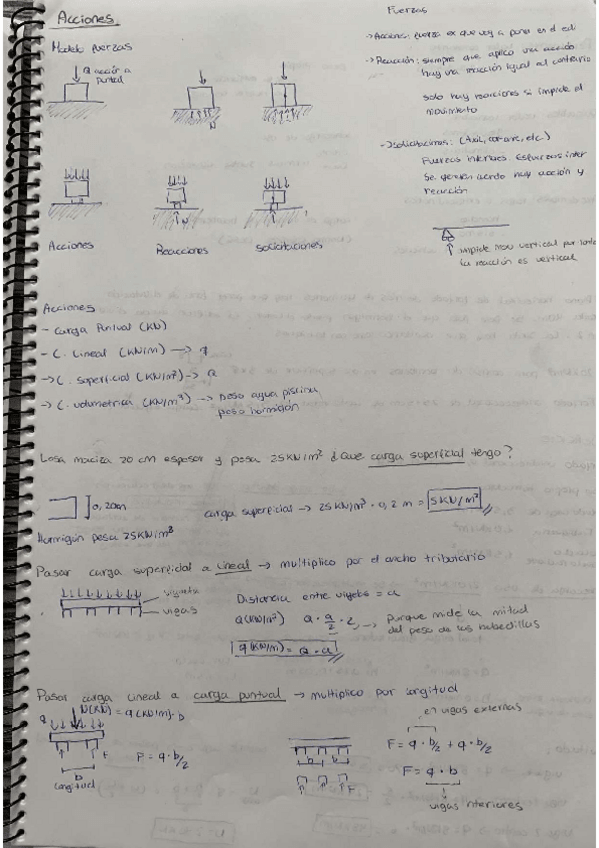 Acciones
Modelo fuerzas
Q acción a
puntal
N
Acciones
Reacciones
solicitaciones
Fuerzas
→ Acciones: fuerza ex que voy a poner en el edi
→ Reacción: siempre que aplico una acción
hay una reacción igual al contrario
solo hay reacciones si impide el
movimiento
→ Solicitaciones: (Axil, cortante, etc.)
Fuerzas internas. Esfuerzos inter
Se generan cuando hay acción y
reacción
↑ impide mov vertical por tanto
la reacción es vertical
Acciones
- Carga Puntual (KN)
- C. Lineal (KN/m) → q
→ C. superficial (KN/m²) → Q
→ C. volumetrica (KN/m³) → peso agua piscina
peso hormigón
Losa maciza 20 cm espesor y pesa 25KN/m² ¿Que carga superficial tengo?
0,20m
carga superficial → 25 KN/m³ · 0,2 m = 5KN/m²
Hormigón pesa 25KN/m³
Pasar carga superficial a lineal → multiplico por el ancho tributario
vigueta
vigas
Distancia entre viguetas = a
Q(KN/m²) Q · a/2 · 2 → porque mide la mitad
del peso de las bobedillas
q(KN/m) = Q · a
Pasar carga lineal a carga puntual → multiplico por longitud
q
N(KN) = q(KN/m) · b
F
b
longitud
P = q · b/2
b
b
F
en vigas externas
F = q · b/2 + q · b/2
F = q · b
vigas interiores